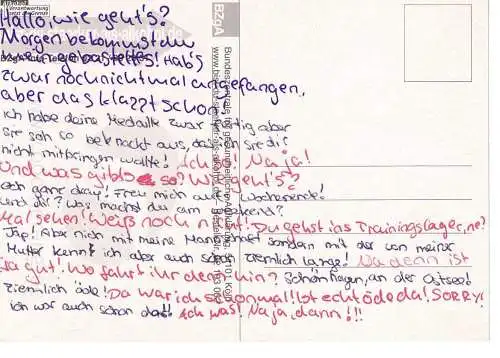 Verantwortung
Hallo, wie geht's?
Morgen bekommst du
was gebasteltes! Hab's
zwar noch nicht mal angefangen,
aber das klappt schon!
Ich habe deine Medaille zwar fertig aber
sie sah so beknackt aus, daß ich sie dir
nicht mitbringen wollte! Ach so! Na ja!
Und was gibts so? Wie geht's?
Och ganz okay! Freu mich auf's Wochenende!
und du? Was machst du am Weekend?
Mal sehen! Weiß noch nicht! Du gehst ins Trainingslager, ne?
Jap! Aber nich mit meine Mannschaft sondern mit der von meiner
Mutter kenn' ich aber auch schon ziemlich lange! Na denn ist
ja gut! Wo fahrt ihr denn hin? Schönhagen, an der Ostsee!
Ziemlich öde! Da war ich schonmal! Ist echt öde da! SORRY!
Ich war auch schon dort! Ach was! Na ja, dann!!!
BZgA
Bundeszentrale für gesundheitliche Aufklärung, 51101 Köln